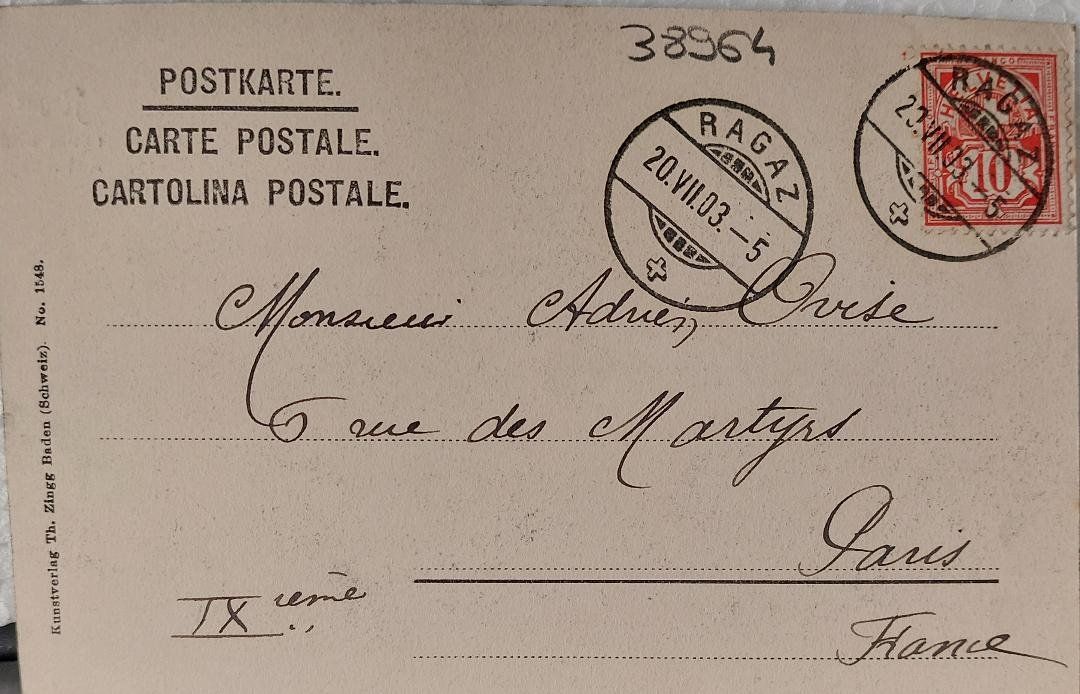 38964
POSTKARTE.
CARTE POSTALE.
CARTOLINA POSTALE.
RAGAZ
20.VII.03.–5
RAGAZ
20.VII.03.–5
HELVETIA
10
Monsieur Adrien Ovise
6 rue des Martyrs
Paris
IXième
France
Kunstverlag Th. Zingg Baden (Schweiz). No. 1548.